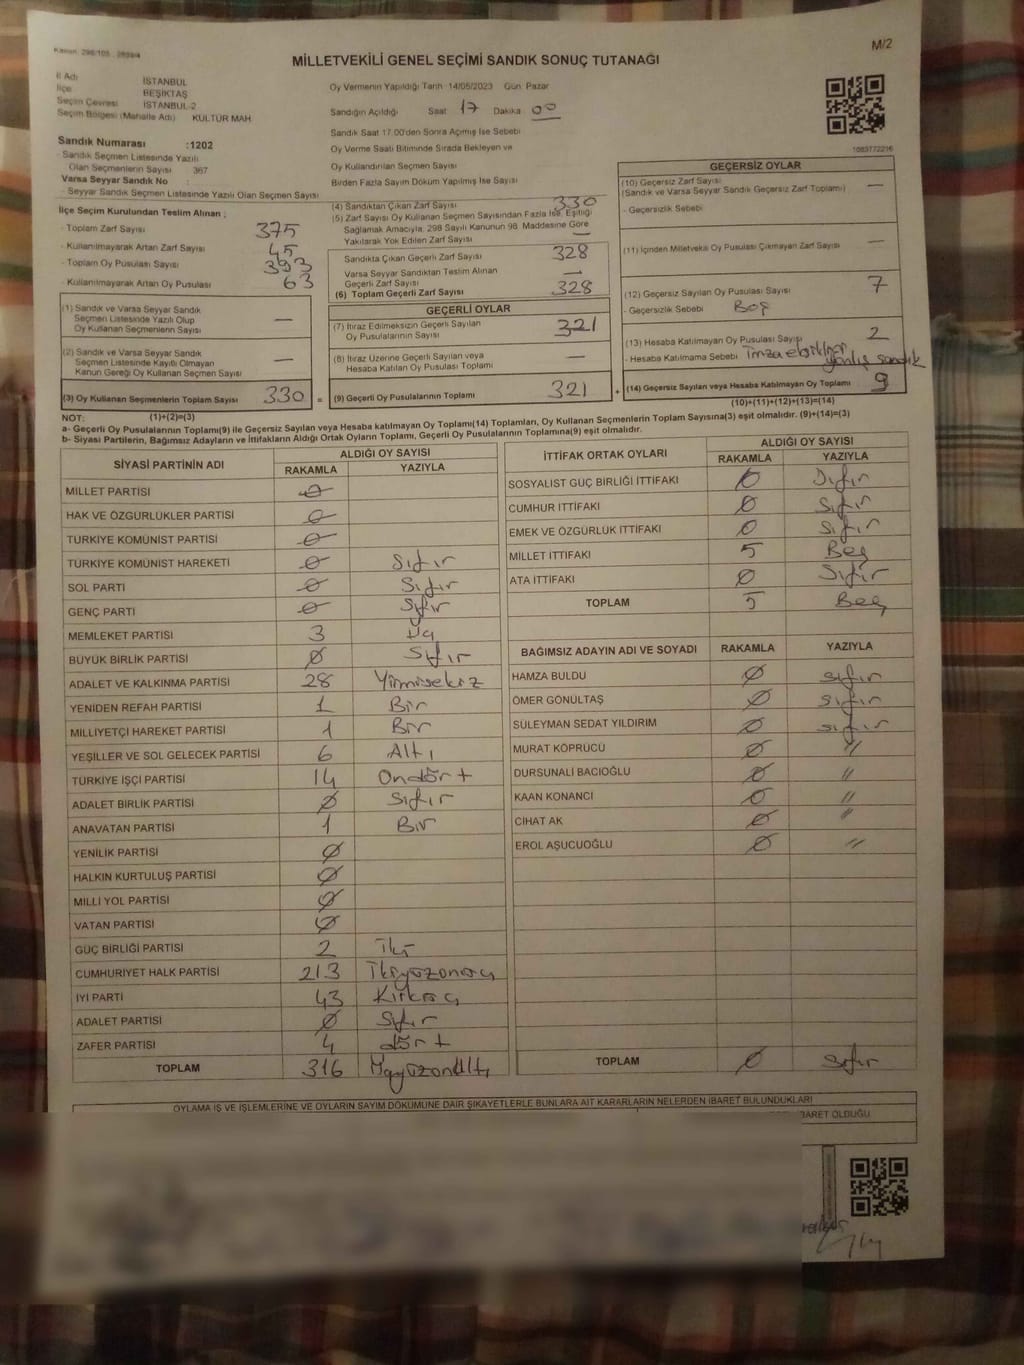 Kanun: 298/105 , 2839/4
M/2
MİLLETVEKİLİ GENEL SEÇİMİ SANDIK SONUÇ TUTANAĞI
İl Adı İSTANBUL
İlçe BEŞİKTAŞ
Seçim Çevresi İSTANBUL-2
Seçim Bölgesi (Mahalle Adı) KÜLTÜR MAH
Sandık Numarası :1202
- Sandık Seçmen Listesinde Yazılı
Olan Seçmenlerin Sayısı 367
Varsa Seyyar Sandık No :
- Seyyar Sandık Seçmen Listesinde Yazılı Olan Seçmen Sayısı
İlçe Seçim Kurulundan Teslim Alınan ;
- Toplam Zarf Sayısı 375
- Kullanılmayarak Artan Zarf Sayısı 45
- Toplam Oy Pusulası Sayısı 393
- Kullanılmayarak Artan Oy Pusulası 63
(1) Sandık ve Varsa Seyyar Sandık
Listesinde Yazılı Olup
Oy Kullanan Seçmenlerin Sayısı —
(2) Sandık ve Varsa Seyyar Sandık
Seçmen Listesinde Kayıtlı Olmayan
Kanun Gereği Oy Kullanan Seçmen Sayısı —
(3) Oy Kullanan Seçmenlerin Toplam Sayısı 330 =
Oy Vermenin Yapıldığı Tarih 14/05/2023 Gün Pazar
Sandığın Açıldığı Saat 17 Dakika 00
Sandık Saat 17.00'den Sonra Açılmış İse Sebebi
Oy Verme Saati Bitiminde Sırada Bekleyen ve
Oy Kullandırılan Seçmen Sayısı
Birden Fazla Sayım Döküm Yapılmış İse Sayısı
(4) Sandıktan Çıkan Zarf Sayısı 330
(5) Zarf Sayısı Oy Kullanan Seçmen Sayısından Fazla İse, Eşitliği
Sağlamak Amacıyla, 298 Sayılı Kanunun 98. Maddesine Göre
Yakılarak Yok Edilen Zarf Sayısı —
Sandıkta Çıkan Geçerli Zarf Sayısı 328
Varsa Seyyar Sandıktan Teslim Alınan
Geçerli Zarf Sayısı —
(6) Toplam Geçerli Zarf Sayısı 328
GEÇERLİ OYLAR
(7) İtiraz Edilmeksizin Geçerli Sayılan
Oy Pusulalarının Sayısı 321
(8) İtiraz Üzerine Geçerli Sayılan veya
Hesaba Katılan Oy Pusulası Toplamı —
(9) Geçerli Oy Pusulalarının Toplamı 321 +
1083772216
GEÇERSİZ OYLAR
(10) Geçersiz Zarf Sayısı
(Sandık ve Varsa Seyyar Sandık Geçersiz Zarf Toplamı) —
- Geçersizlik Sebebi
(11) İçinden Milletvekili Oy Pusulası Çıkmayan Zarf Sayısı —
(12) Geçersiz Sayılan Oy Pusulası Sayısı 7
- Geçersizlik Sebebi Boş
(13) Hesaba Katılmayan Oy Pusulası Sayısı 2
- Hesaba Katılmama Sebebi yanlış sandık
(14) Geçersiz Sayılan veya Hesaba Katılmayan Oy Toplamı 9
(10)+(11)+(12)+(13)=(14)
NOT: (1)+(2)=(3)
a- Geçerli Oy Pusulalarının Toplamı(9) ile Geçersiz Sayılan veya Hesaba katılmayan Oy Toplamı(14) Toplamları, Oy Kullanan Seçmenlerin Toplam Sayısına(3) eşit olmalıdır. (9)+(14)=(3)
b- Siyasi Partilerin, Bağımsız Adayların ve İttifakların Aldığı Ortak Oyların Toplamı, Geçerli Oy Pusulalarının Toplamına(9) eşit olmalıdır.
SİYASİ PARTİNİN ADI ALDIĞI OY SAYISI
RAKAMLA YAZIYLA
MİLLET PARTİSİ 0
HAK VE ÖZGÜRLÜKLER PARTİSİ 0
TÜRKİYE KOMÜNİST PARTİSİ 0
TÜRKİYE KOMÜNİST HAREKETİ 0 Sıfır
SOL PARTİ 0 Sıfır
GENÇ PARTİ 0 Sıfır
MEMLEKET PARTİSİ 3 Üç
BÜYÜK BİRLİK PARTİSİ 0 Sıfır
ADALET VE KALKINMA PARTİSİ 28 Yirmisekiz
YENİDEN REFAH PARTİSİ 1 Bir
MİLLİYETÇİ HAREKET PARTİSİ 1 Bir
YEŞİLLER VE SOL GELECEK PARTİSİ 6 Altı
TÜRKİYE İŞÇİ PARTİSİ 14 Ondört
ADALET BİRLİK PARTİSİ 0 Sıfır
ANAVATAN PARTİSİ 1 Bir
YENİLİK PARTİSİ 0
HALKIN KURTULUŞ PARTİSİ 0
MİLLİ YOL PARTİSİ 0
VATAN PARTİSİ 0
GÜÇ BİRLİĞİ PARTİSİ 2 İki
CUMHURİYET HALK PARTİSİ 213 İkiyüzonüç
İYİ PARTİ 43 Kırküç
ADALET PARTİSİ 0 Sıfır
ZAFER PARTİSİ 4 dört
TOPLAM 316 Üçyüzonaltı
İTTİFAK ORTAK OYLARI ALDIĞI OY SAYISI
RAKAMLA YAZIYLA
SOSYALİST GÜÇ BİRLİĞİ İTTİFAKI 0 Sıfır
CUMHUR İTTİFAKI 0 Sıfır
EMEK VE ÖZGÜRLÜK İTTİFAKI 0 Sıfır
MİLLET İTTİFAKI 5 Beş
ATA İTTİFAKI 0 Sıfır
TOPLAM 5 Beş
BAĞIMSIZ ADAYIN ADI VE SOYADI RAKAMLA YAZIYLA
HAMZA BULDU 0 sıfır
ÖMER GÖNÜLTAŞ 0 sıfır
SÜLEYMAN SEDAT YILDIRIM 0 sıfır
MURAT KÖPRÜCÜ 0 "
DURSUNALİ BACIOĞLU 0 "
KAAN KONANCI 0 "
CİHAT AK 0 "
EROL AŞUCUOĞLU 0 "
TOPLAM 0 sıfır
OYLAMA İŞ VE İŞLEMLERİNE VE OYLARIN SAYIM DÖKÜMÜNE DAİR ŞİKAYETLERLE BUNLARA AİT KARARLARIN NELERDEN İBARET BULUNDUKLARI
İBARET OLDUĞU